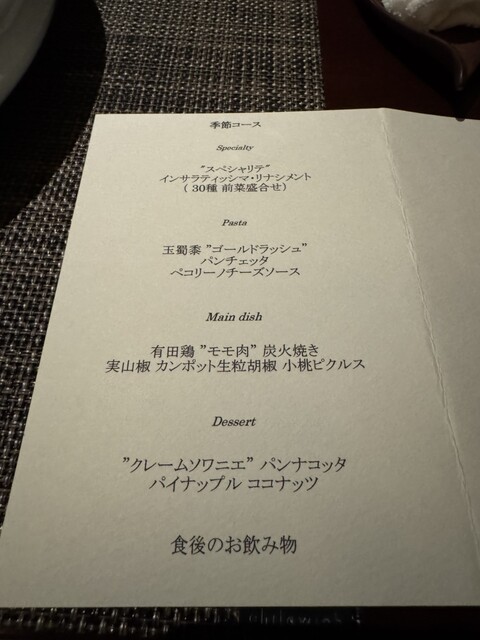 季節コース
Specialty
"スペシャリテ"
インサラティッシマ・リナシメント
( 30種 前菜盛合せ)
Pasta
玉蜀黍 "ゴールドラッシュ"
パンチェッタ
ペコリーノチーズソース
Main dish
有田鶏 "モモ肉" 炭火焼き
実山椒 カンポット生粒胡椒 小桃ピクルス
Dessert
"クレームソワニエ" パンナコッタ
パイナップル ココナッツ
食後のお飲み物